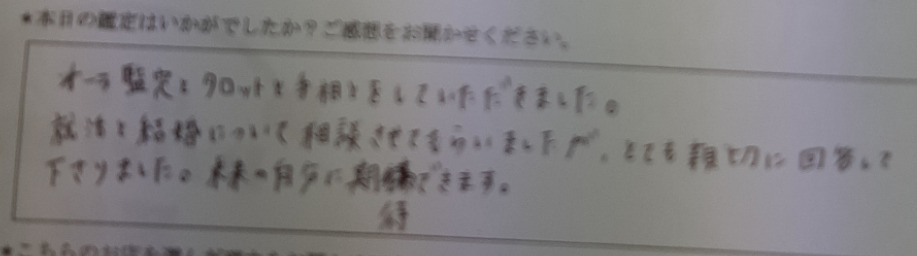 ★本日の鑑定はいかがでしたか？ご感想をお聞かせください。
オーラ監定とタロットと手相とをしていただきました。
就活と結婚について相談させてもらいましたが、とても親切に回答して
下さりました。未来の自分に期待できます。